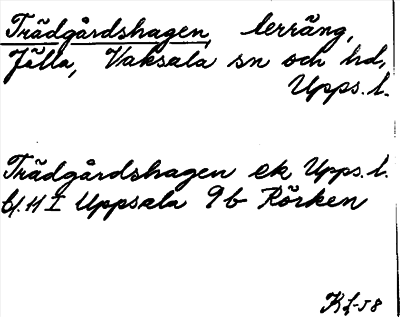 Trädgårdshagen, lerräng,
Jälla, Vaksala sn och hd,
Upps. l.
Trädgårdshagen ek Upps. l.
bl. 11 I Uppsala 9 b Rörken